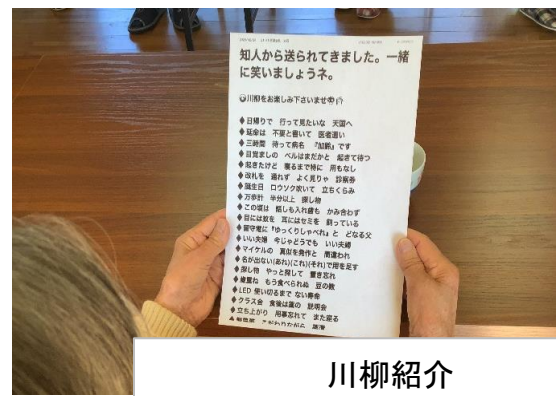 知人から送られてきました。一緒
に笑いましょうネ。
川柳をお楽しみ下さいませ
◆日帰りで 行って見たいな 天国へ
◆延命は 不要と書いて 医者通い
◆三時間 待って病名 『加齢』です
◆目覚ましの ベルはまだかと 起きて待つ
◆起きたけど 寝るまで特に 用もなし
◆改札を 通れず よく見りゃ 診察券
◆誕生日 ロウソク吹いて 立ちくらみ
◆万歩計 半分以上 探し物
◆この頃は 話しも入れ歯も かみ合わず
◆目には蚊を 耳にはセミを 飼っている
◆留守電に 『ゆっくりしゃべれ』と どなる父
◆いい夫婦 今じゃどうでも いい夫婦
◆マイケルの 真似を発作と 間違われ
◆名が出ない(あれ)(これ)(それ)で用を足す
◆探し物 やっと探して 置き忘れ
◆歳重ね もう食べられぬ 豆の数
◆LED 使い切るまで ない寿命
◆クラス会 食後は薬の 説明会
◆立ち上がり 用事忘れて また座る
川柳紹介